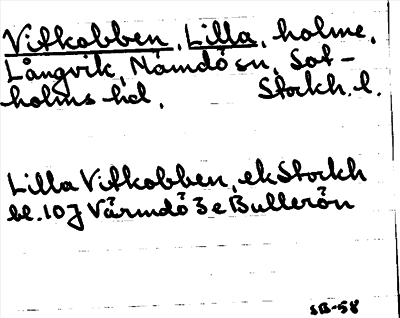 Vitkobben, Lilla, holme,
Långvik, Nämdö sn, Sot-
holms hd, Stockh. l.
Lilla Vitkobben, ek Stockh
bl. 107 Värmdö 3e Bullerön
SB-58